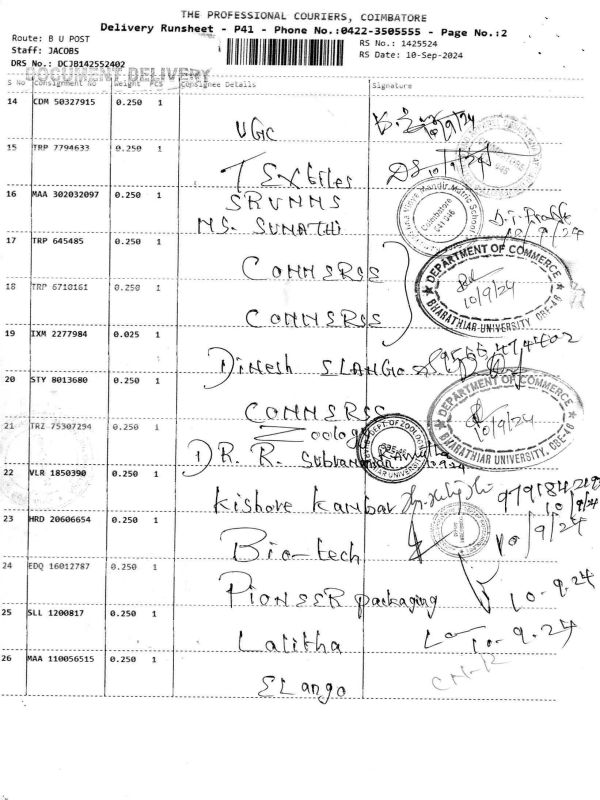 THE PROFESSIONAL COURIERS, COIMBATORE
Delivery Runsheet - P41 - Phone No.:0422-3505555 - Page No.:2
Route: B U POST
RS No.: 1425524
Staff: JACOBS
RS Date: 10-Sep-2024
DRS No.: DCJB142552402
DOCUMENT DELIVERY
S No Consignment No Weight PCS Consignee Details Signature
14 CDM 50327915 0.250 1
UGC 10/9/24
15 TRP 7794633 0.250 1
TEXtiles DS 10/9/24
16 MAA 302032097 0.250 1
SRVMMS
MS. SUMATHI
Coimbatore
641 046
17 TRP 645485 0.250 1
COMMERCE
DEPARTMENT OF COMMERCE
10/9/24
BHARATHIAR UNIVERSITY, CBE-46
18 TRP 6710161 0.250 1
COMMERCE
19 IXM 2277984 0.025 1
DINESH ELANGO
20 STY 8013680 0.250 1
COMMERCE
DEPARTMENT OF COMMERCE
10/9/24
BHARATHIAR UNIVERSITY, CBE-46
21 TRZ 75307294 0.250 1
Zoology
DR. R. Subramanian
22 VLR 1850390 0.250 1
Kishore Kambar
10/9/24
23 HRD 20606654 0.250 1
Bio-tech 10/9/24
24 EDQ 16012787 0.250 1
PIONEER packaging 10-9-24
25 SLL 1200817 0.250 1
Lalitha 10-9-24
26 MAA 110056515 0.250 1
ELango